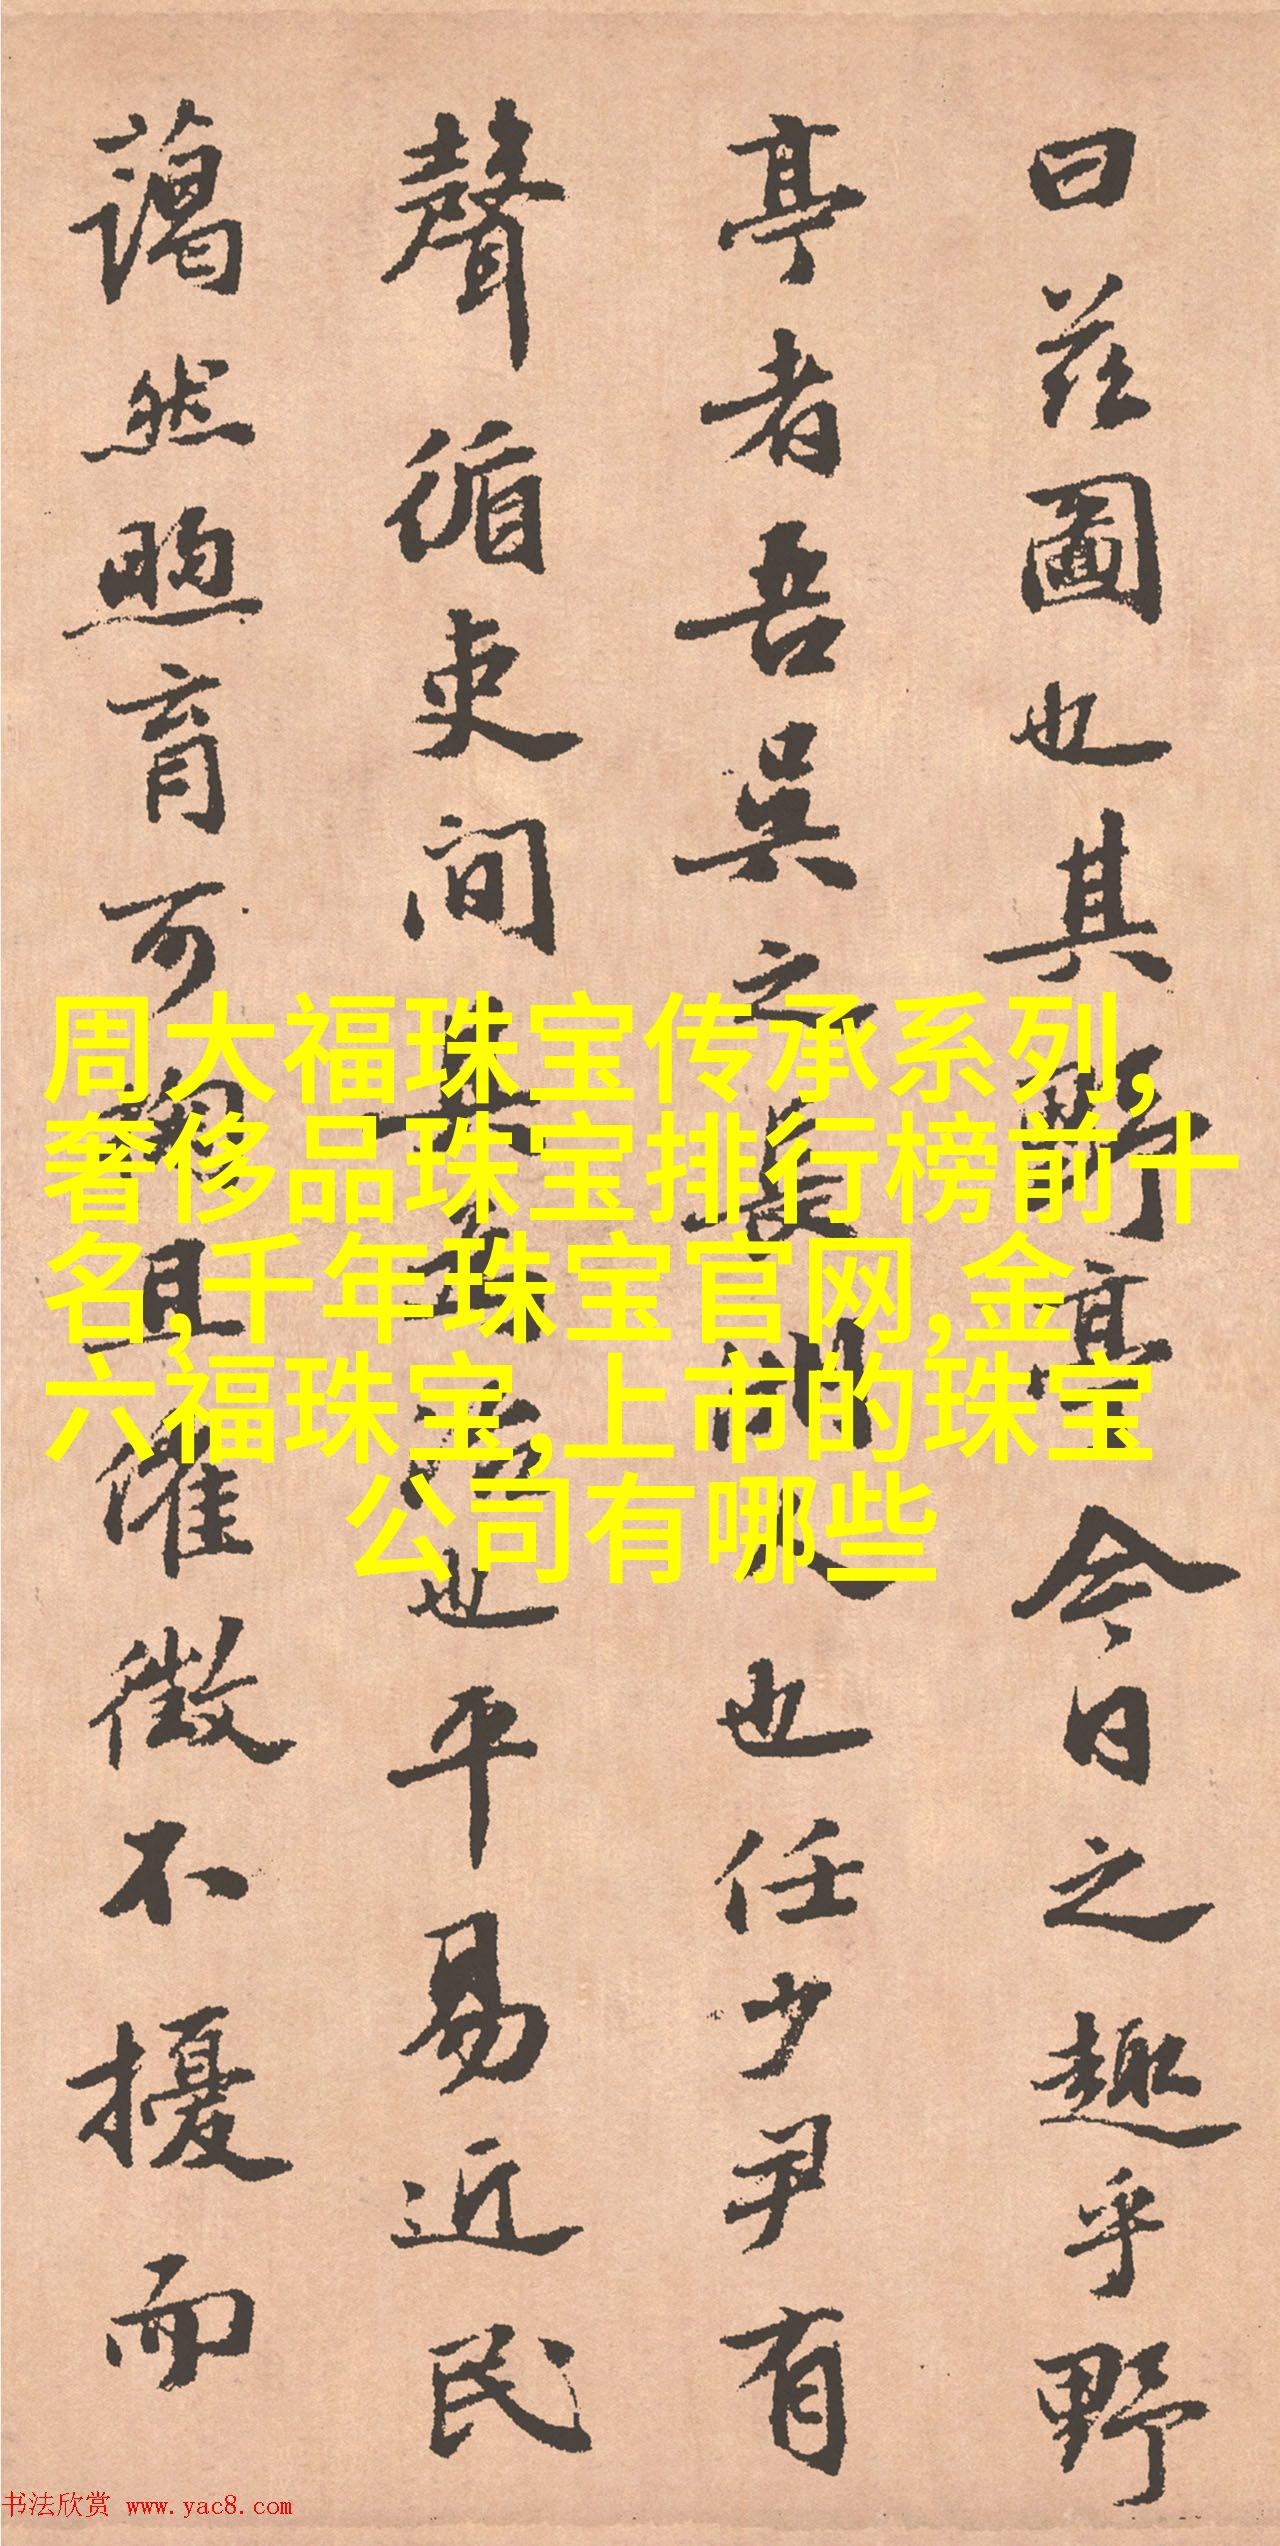 曰茲圖也其野亭今日之趣乎野
亭者吾吳之長洲人也任少尹有
聲循吏间其為治也平易近民
藹然煦育可掬且催徵不擾而
周大福珠宝传承系列,
奢侈品珠宝排行榜前十
名,千年珠宝官网,金
六福珠宝,上市的珠宝
公司有哪些
书法欣赏 www.yac8.com